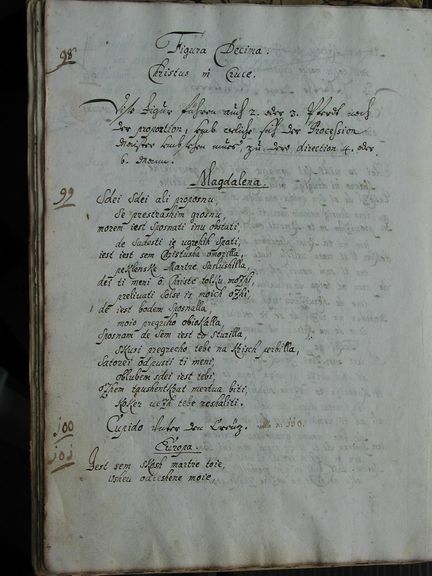 98
Figura Decima.
Christus in Cruce.
Dise Figur führen auch 2. oder 3. Pferdt nach
der proportion, undt welche sich der Procession
Monster umbsehen mues, zu dero direction 4. oder
6. Mann.
Magdalena.
99
Sdei Sdei ali proposnu,
Se prestrashim grosnu,
morem iest sposnati inu obstati,
de Sadosti ie ugrehih Spati,
iest iest sem Christusha omorilla,
peklenske Martre Saslushilla,
dei ti meni ô Christe tolku mozhi,
prelivati Solse is moich ozhi,
de iest bodem sposnalla,
moio pregrho obiokalla,
Sposnam de Sem iest to sturilla,
Skusi pregrecho tebe na Krisch perbilla,
Satorei odpusti ti meni,
oblubem sdei iest tebi,
ozhem taushentkrat mertua biti,
Kaker uezh tebe reshaliti.
100
Cupido unter den Creüz.
101
Europa.
Iest sem skosh martre toie,
usheu odreshene moie,